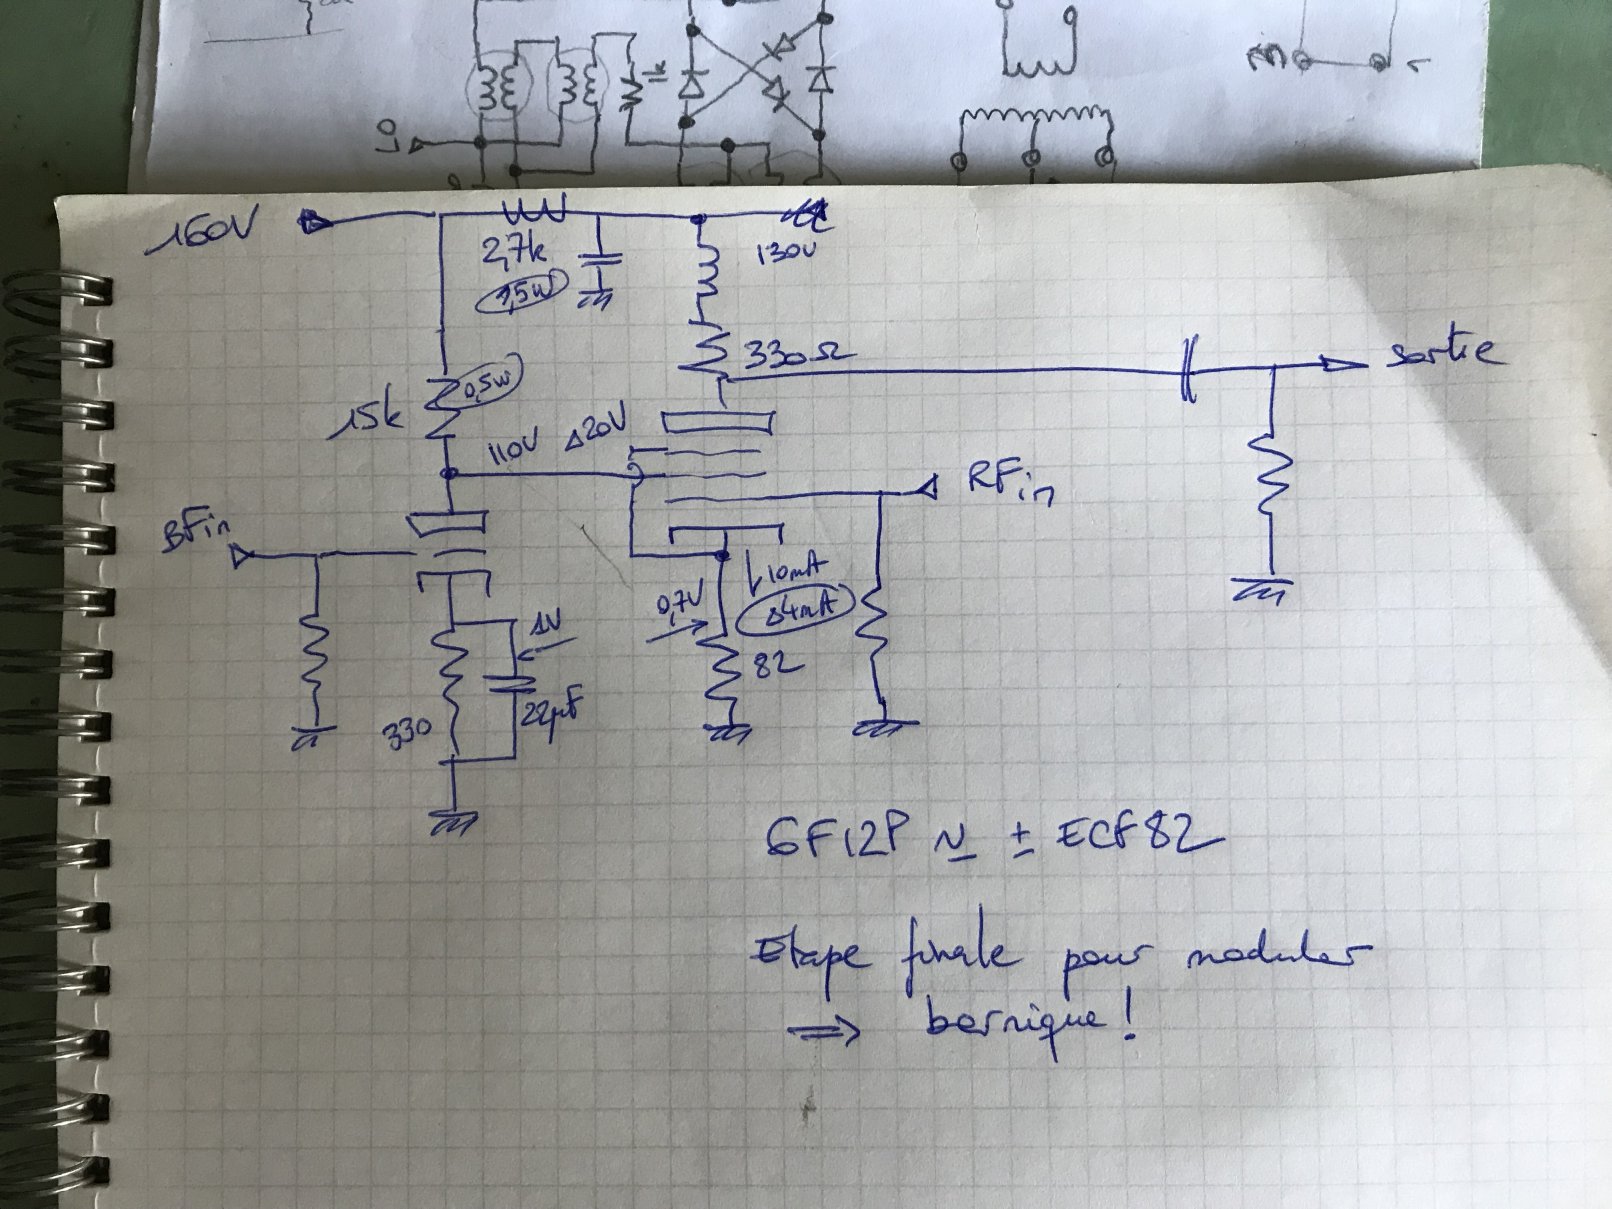 1k
160V
2,7k
1,5W
130V
330Ω
sortie
0,5W
15k
110V Δ20V
RFin
BFin
10mA
Δ4mA
0,7V
1V
82
22µF
330
6F12P N ± ECF82
Etape finale pour moduler
⇒ bernique!